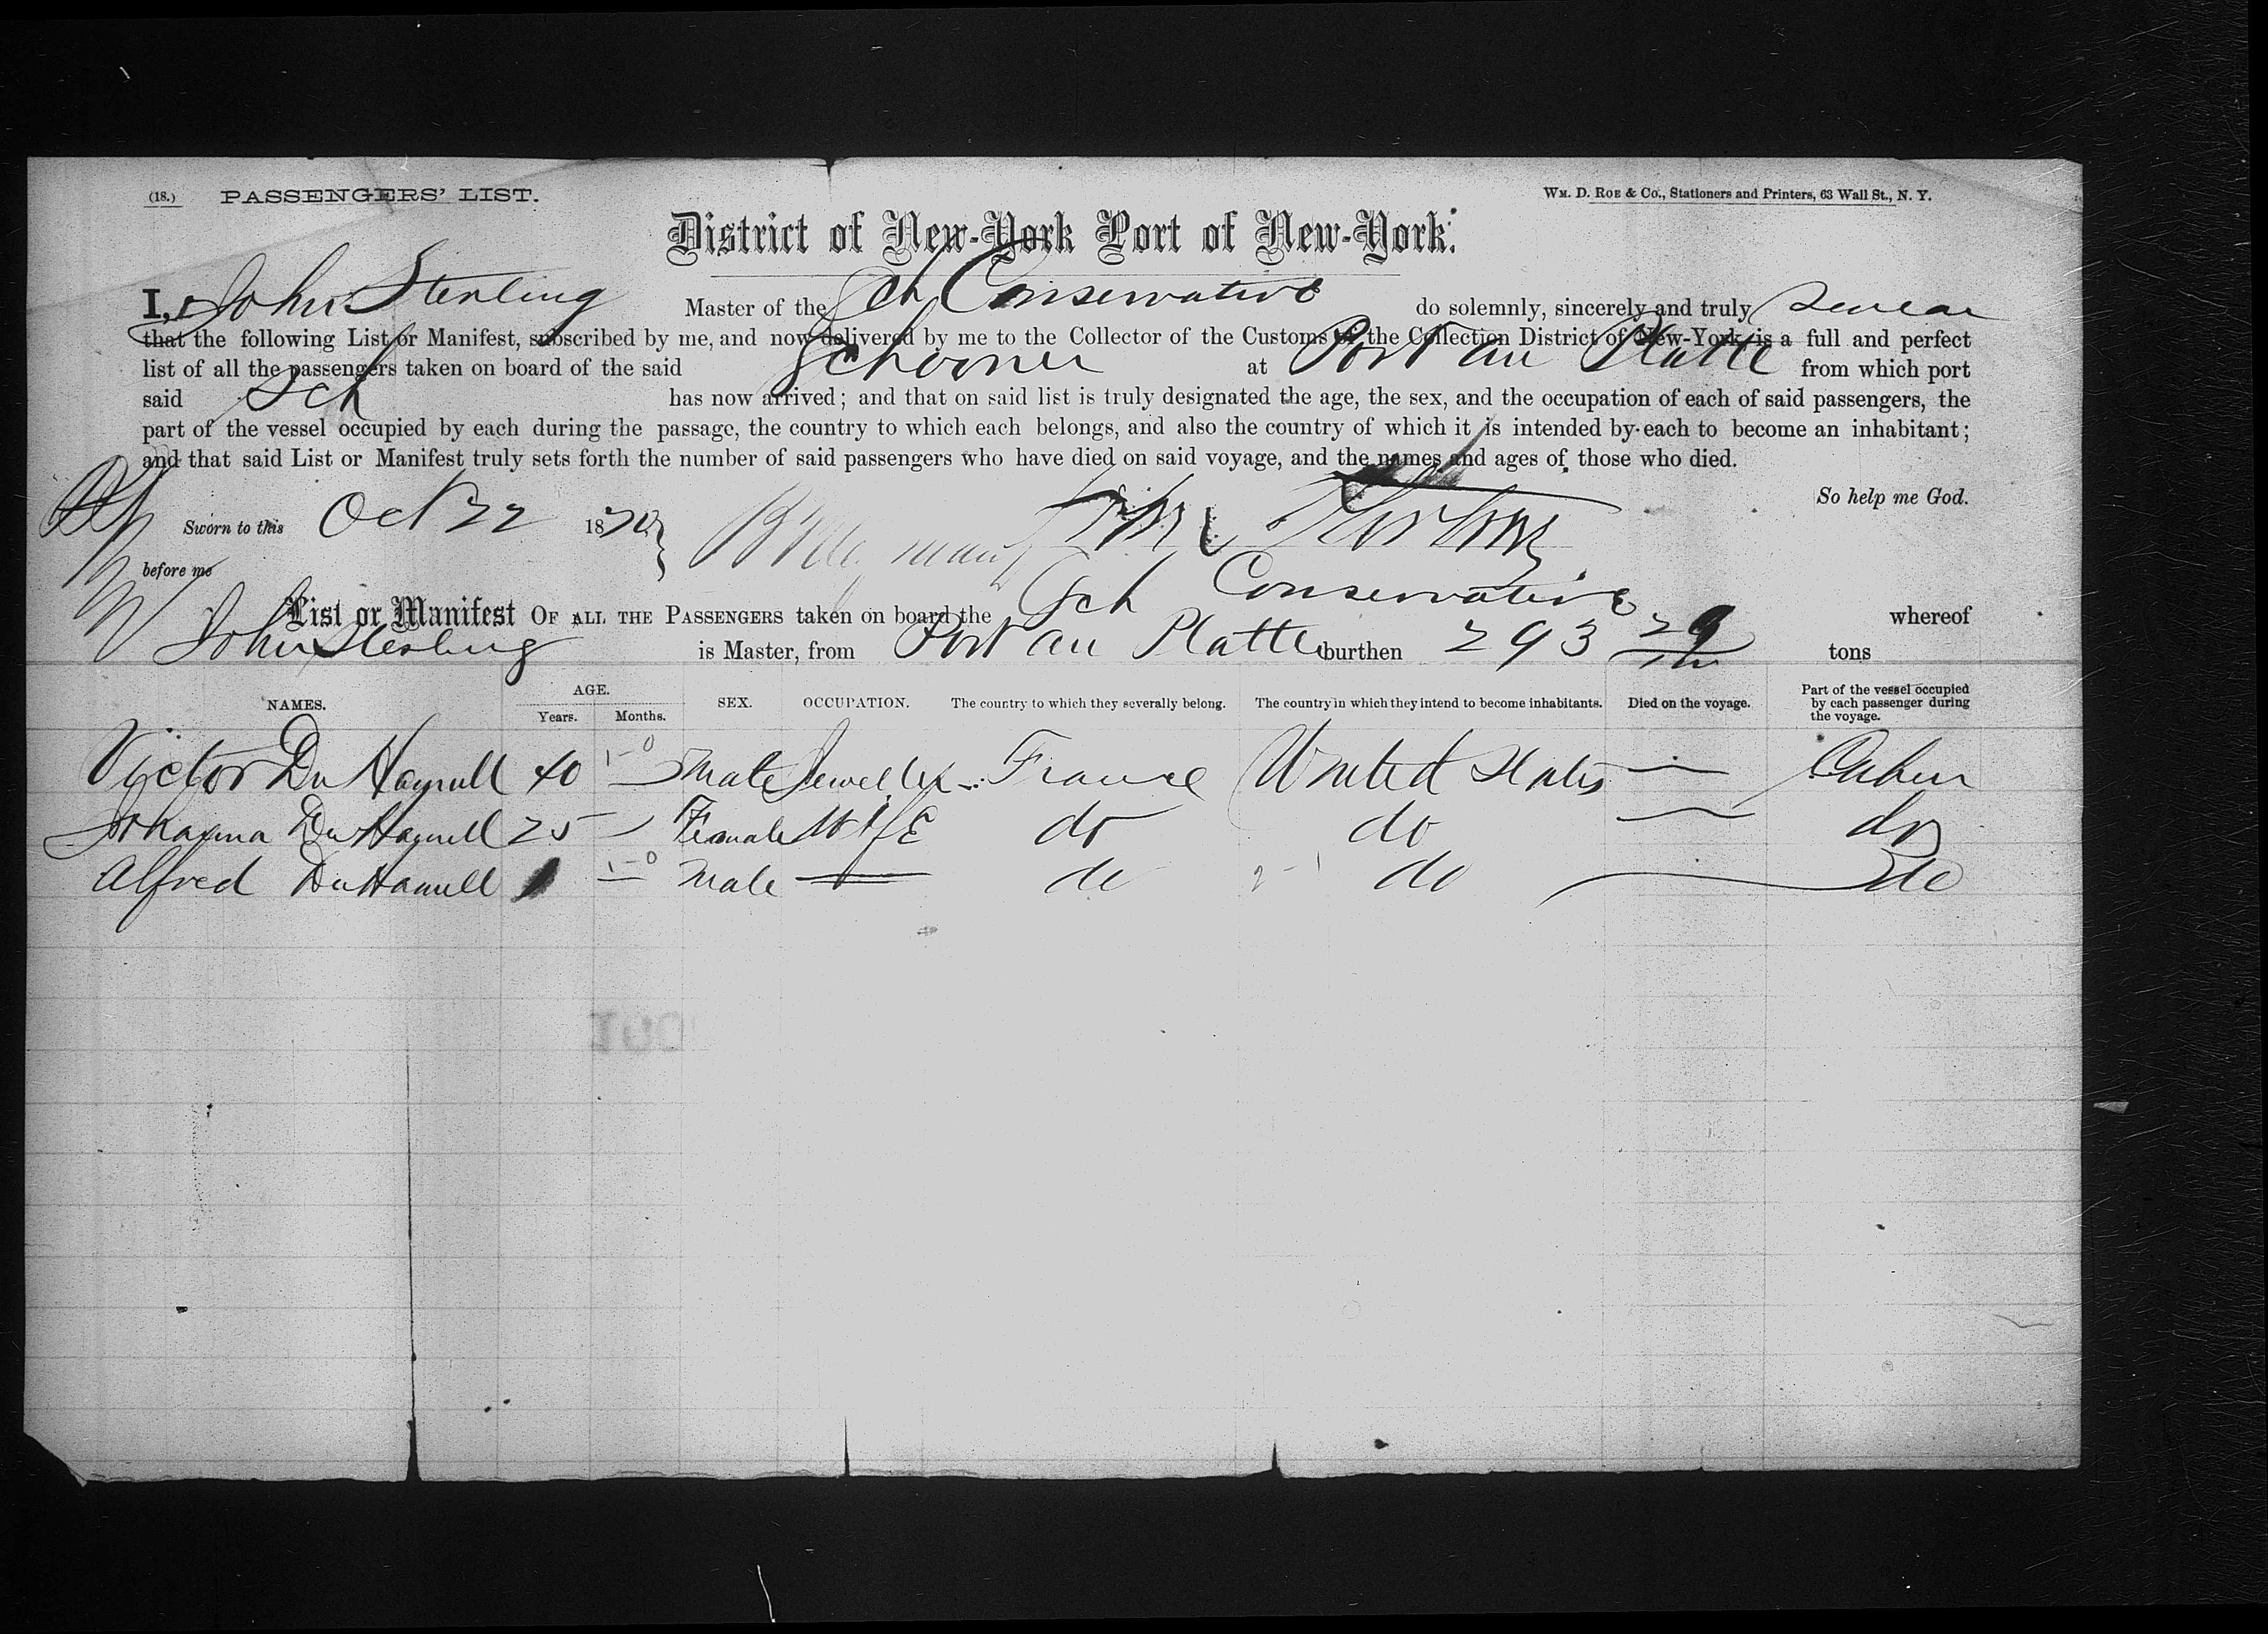 (18.) PASSENGERS' LIST.
WM. D. ROE & CO., Stationers and Printers, 63 Wall St., N. Y.
District of New-York Port of New-York.
I, John Sterling Master of the Sch Conservative do solemnly, sincerely and truly swear
that the following List or Manifest, subscribed by me, and now delivered by me to the Collector of the Customs of the Collection District of New-York, is a full and perfect
list of all the passengers taken on board of the said Schooner at Port au Platte from which port
said Sch has now arrived; and that on said list is truly designated the age, the sex, and the occupation of each of said passengers, the
part of the vessel occupied by each during the passage, the country to which each belongs, and also the country of which it is intended by each to become an inhabitant;
and that said List or Manifest truly sets forth the number of said passengers who have died on said voyage, and the names and ages of those who died.
So help me God.
Sworn to this Oct 22 1870
before me
List or Manifest OF ALL THE PASSENGERS taken on board the Sch Conservative whereof
John Sterling is Master, from Port au Platte burthen 293 29 tons
NAMES. AGE. Years. Months. SEX. OCCUPATION. The country to which they severally belong. The country in which they intend to become inhabitants. Died on the voyage. Part of the vessel occupied by each passenger during the voyage.
Victor Du Hamell 40 Male Jeweller France United States — Cabin
Johanna Du Hamell 25 Female Wife do do — do
Alfred Du Hamell Male — do do — do